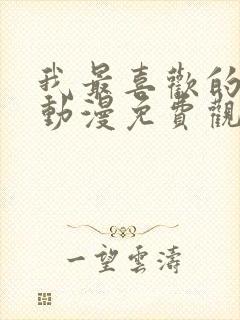 我最喜歡的
動漫免費觀
一望雲濤